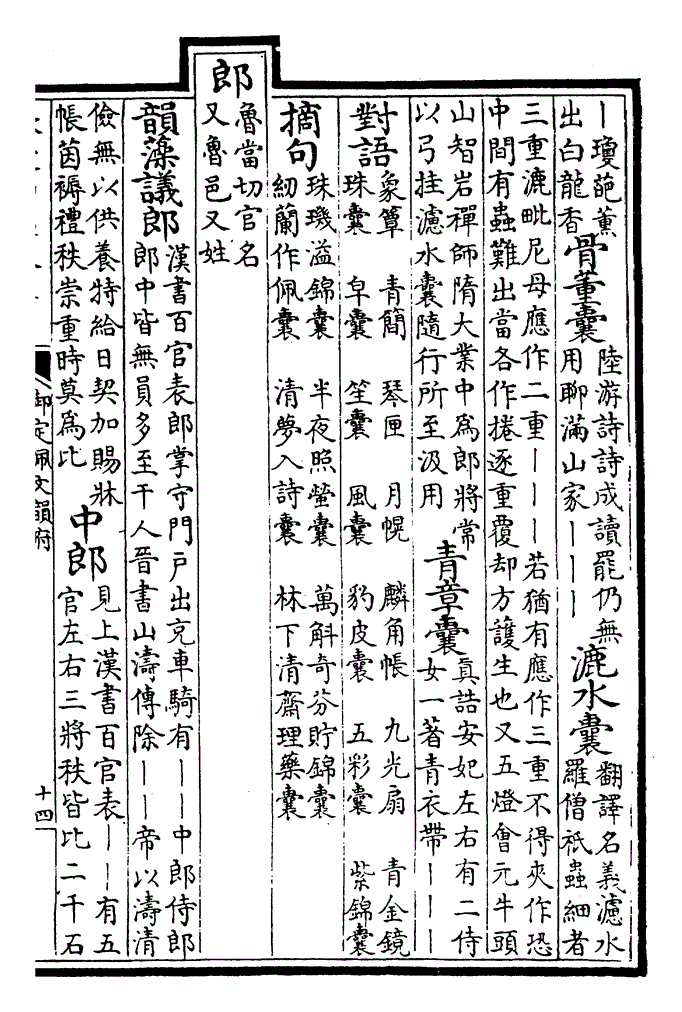 ｜瓊葩薰
出白龍香
骨董囊
陸游詩詩成讀罷仍無
用聊滿山家｜｜｜
漉水囊
翻譯名義濾水
羅僧祇蟲細者
三重漉毗尼母應作二重｜｜｜若猶有應作三重不得夾作恐
中間有蟲難出當各作捲逐重覆却方護生也又五燈會元牛頭
山智岩禪師隋大業中爲郎將常
以弓挂濾水囊隨行所至汲用
青章囊
真誥安妃左右有二侍
女一著青衣帶｜｜｜
對語
象簟 青簡 琴匣 月幌 麟角帳 九光扇 青金鏡
珠囊 皁囊 笙囊 風囊 豹皮囊 五彩囊 紫錦囊
摘句
珠璣溢錦囊 半夜照螢囊 萬斛奇芬貯錦囊
紉蘭作佩囊 清夢入詩囊 林下清齋理藥囊
郎
魯當切官名
又魯邑又姓
韻藻
議郎
漢書百官表郎掌守門戶出充車騎有｜｜中郎侍郎
郎中皆無員多至千人晉書山濤傳除｜｜帝以濤清
儉無以供養特給日契加賜牀
帳茵褥禮秩崇重時莫爲比
中郎
見上漢書百官表｜｜有五
官左右三將秩皆比二千石
御定佩文韻府
十四